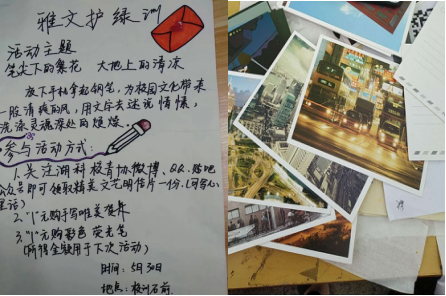 雅文护绿洲
活动主题
笔尖下的繁花 大地上的清凉
放下手机拿起钢笔，为校园文化带来
一股清新的风，用文字去述说情愫，
洗涤灵魂深处的烦燥。
参与活动方式：
1.关注湖科校青协微博、QQ、贴吧
公众号即可领取精美文艺明信片一份.(可写心
里话)
2."1"元购手写唯美
3."1"元购彩色荧光笔
(所得全数用于下次活动)
时间：5月30日
地点：校训石前